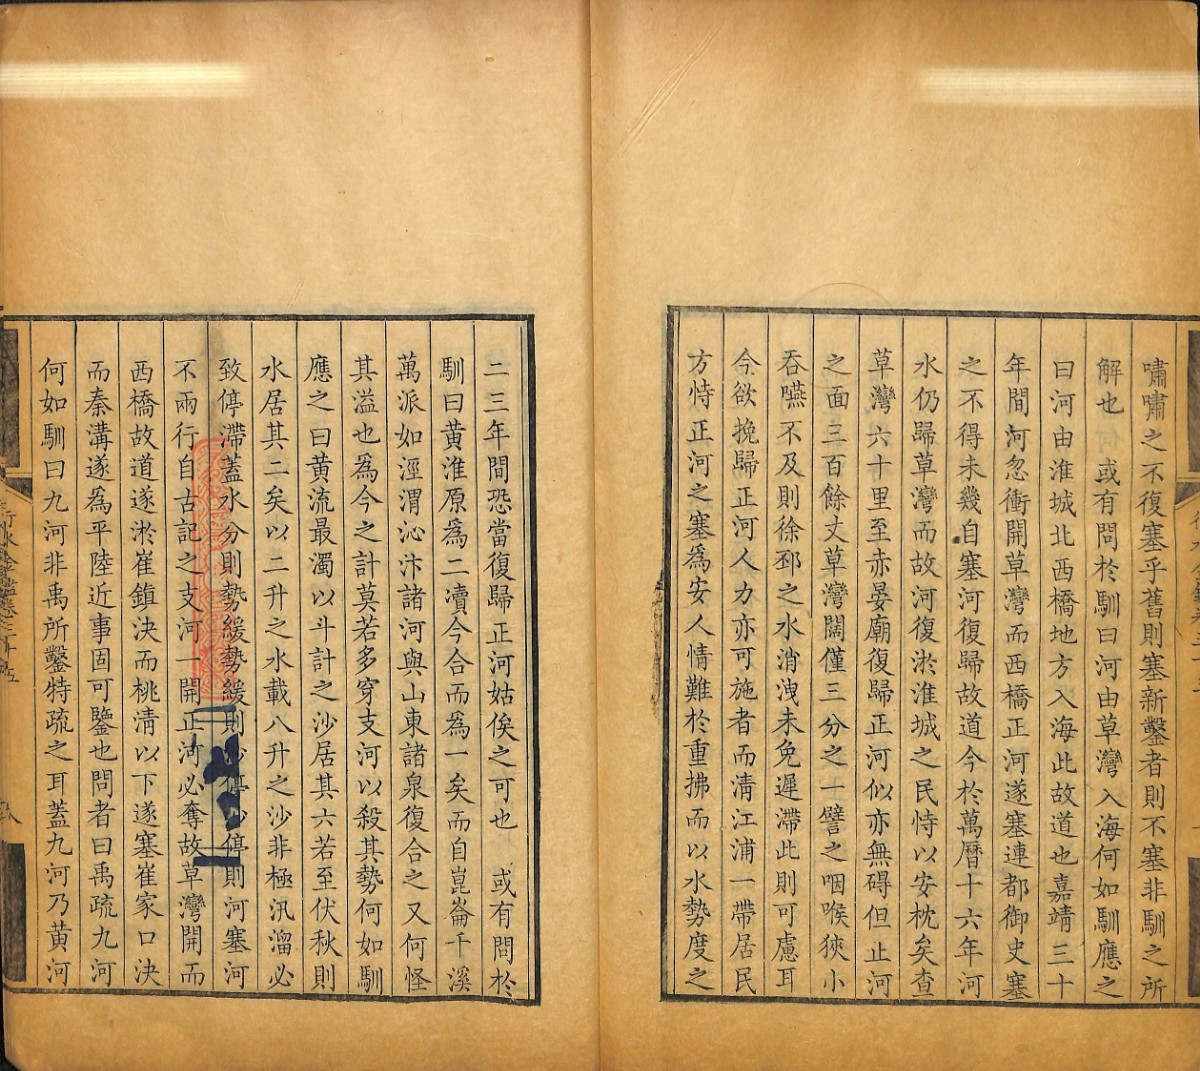 嘯嘯之不復塞乎舊則塞新鑿者則不塞非馴之所
解也　或有問於馴曰河由草灣入海何如馴應之
曰河由淮城北西橋地方入海此故道也嘉靖三十
年間河忽衝開草灣而西橋正河遂塞連都御史塞
之不得未幾自塞河復歸故道今於萬曆十六年河
水仍歸草灣而故河復淤淮城之民恃以安枕矣查
草灣六十里至赤晏廟復歸正河似亦無碍但止河
之面三百餘丈草灣闊僅三分之一譬之咽喉狹小
吞嚥不及則徐邳之水消洩未免遲滯此則可慮耳
今欲挽歸正河人力亦可施者而清江浦一帶居民
方恃正河之塞爲安人情難於重拂而以水勢度之
二三年間恐當復歸正河姑俟之可也　或有問於
馴曰黃淮原爲二瀆今合而爲一矣而自崑崙千溪
萬派如涇渭沁汴諸河與山東諸泉復合之又何怪
其溢也爲今之計莫若多穿支河以殺其勢何如馴
應之曰黃流最濁以斗計之沙居其六若至伏秋則
水居其二矣以二升之水載八升之沙非極汛溜必
致停滯蓋水分則勢緩勢緩則沙停沙停則河塞河
不兩行自古記之支河一開正河必奪故草灣開而
西橋故道遂淤崔鎮決而桃清以下遂塞崔家口決
而秦溝遂爲平陸近事固可鑒也問者曰禹疏九河
何如馴曰九河非禹所鑿特疏之耳蓋九河乃黃河
行水金鑑卷三十五